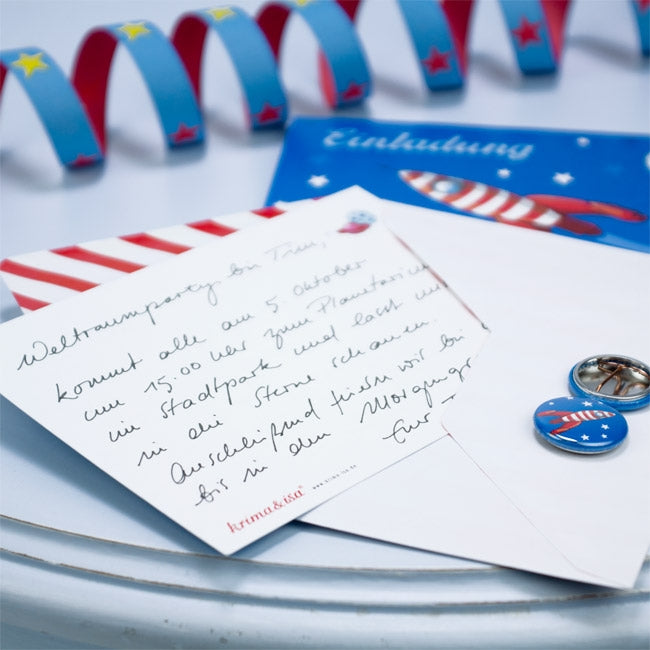 Einladung
Weltraumparty bei Tim,
kommt alle am 5. Oktober
um 15.00 Uhr zum Planetarium
im Stadtpark und lasst uns
in die Sterne schauen.
Anschließend feiern wir bei
bis in den
Euer
krima&isa